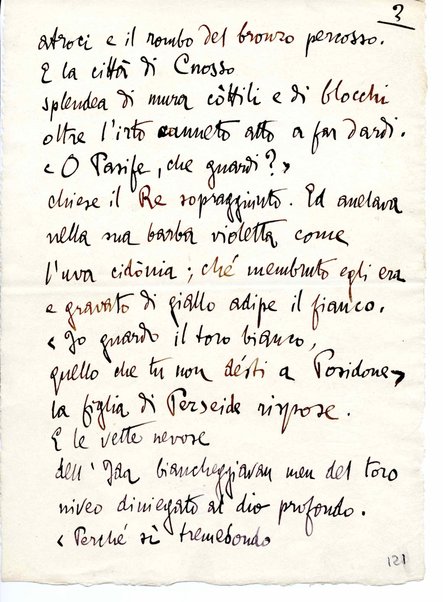 3
atroci e il rombo del bronzo percosso.
E la città di Cnosso
splendea di mura còttili e di blocchi
oltre l'irto canneto atto a far dardi.
« O Pasife, che guardi? »
chiese il Re sopraggiunto. Ed anelava
nella sua barba violetta come
l'uva cidònia ; ché membruto egli era
e gravato di giallo adipe il fianco.
« Io guardo il toro bianco,
quello che tu non désti a Posidone »
la figlia di Perseide rispose.
E le vette nevose
dell' Ida biancheggiavan men del toro
niveo diniegato al dio profondo.
« Perché sì tremebondo
121